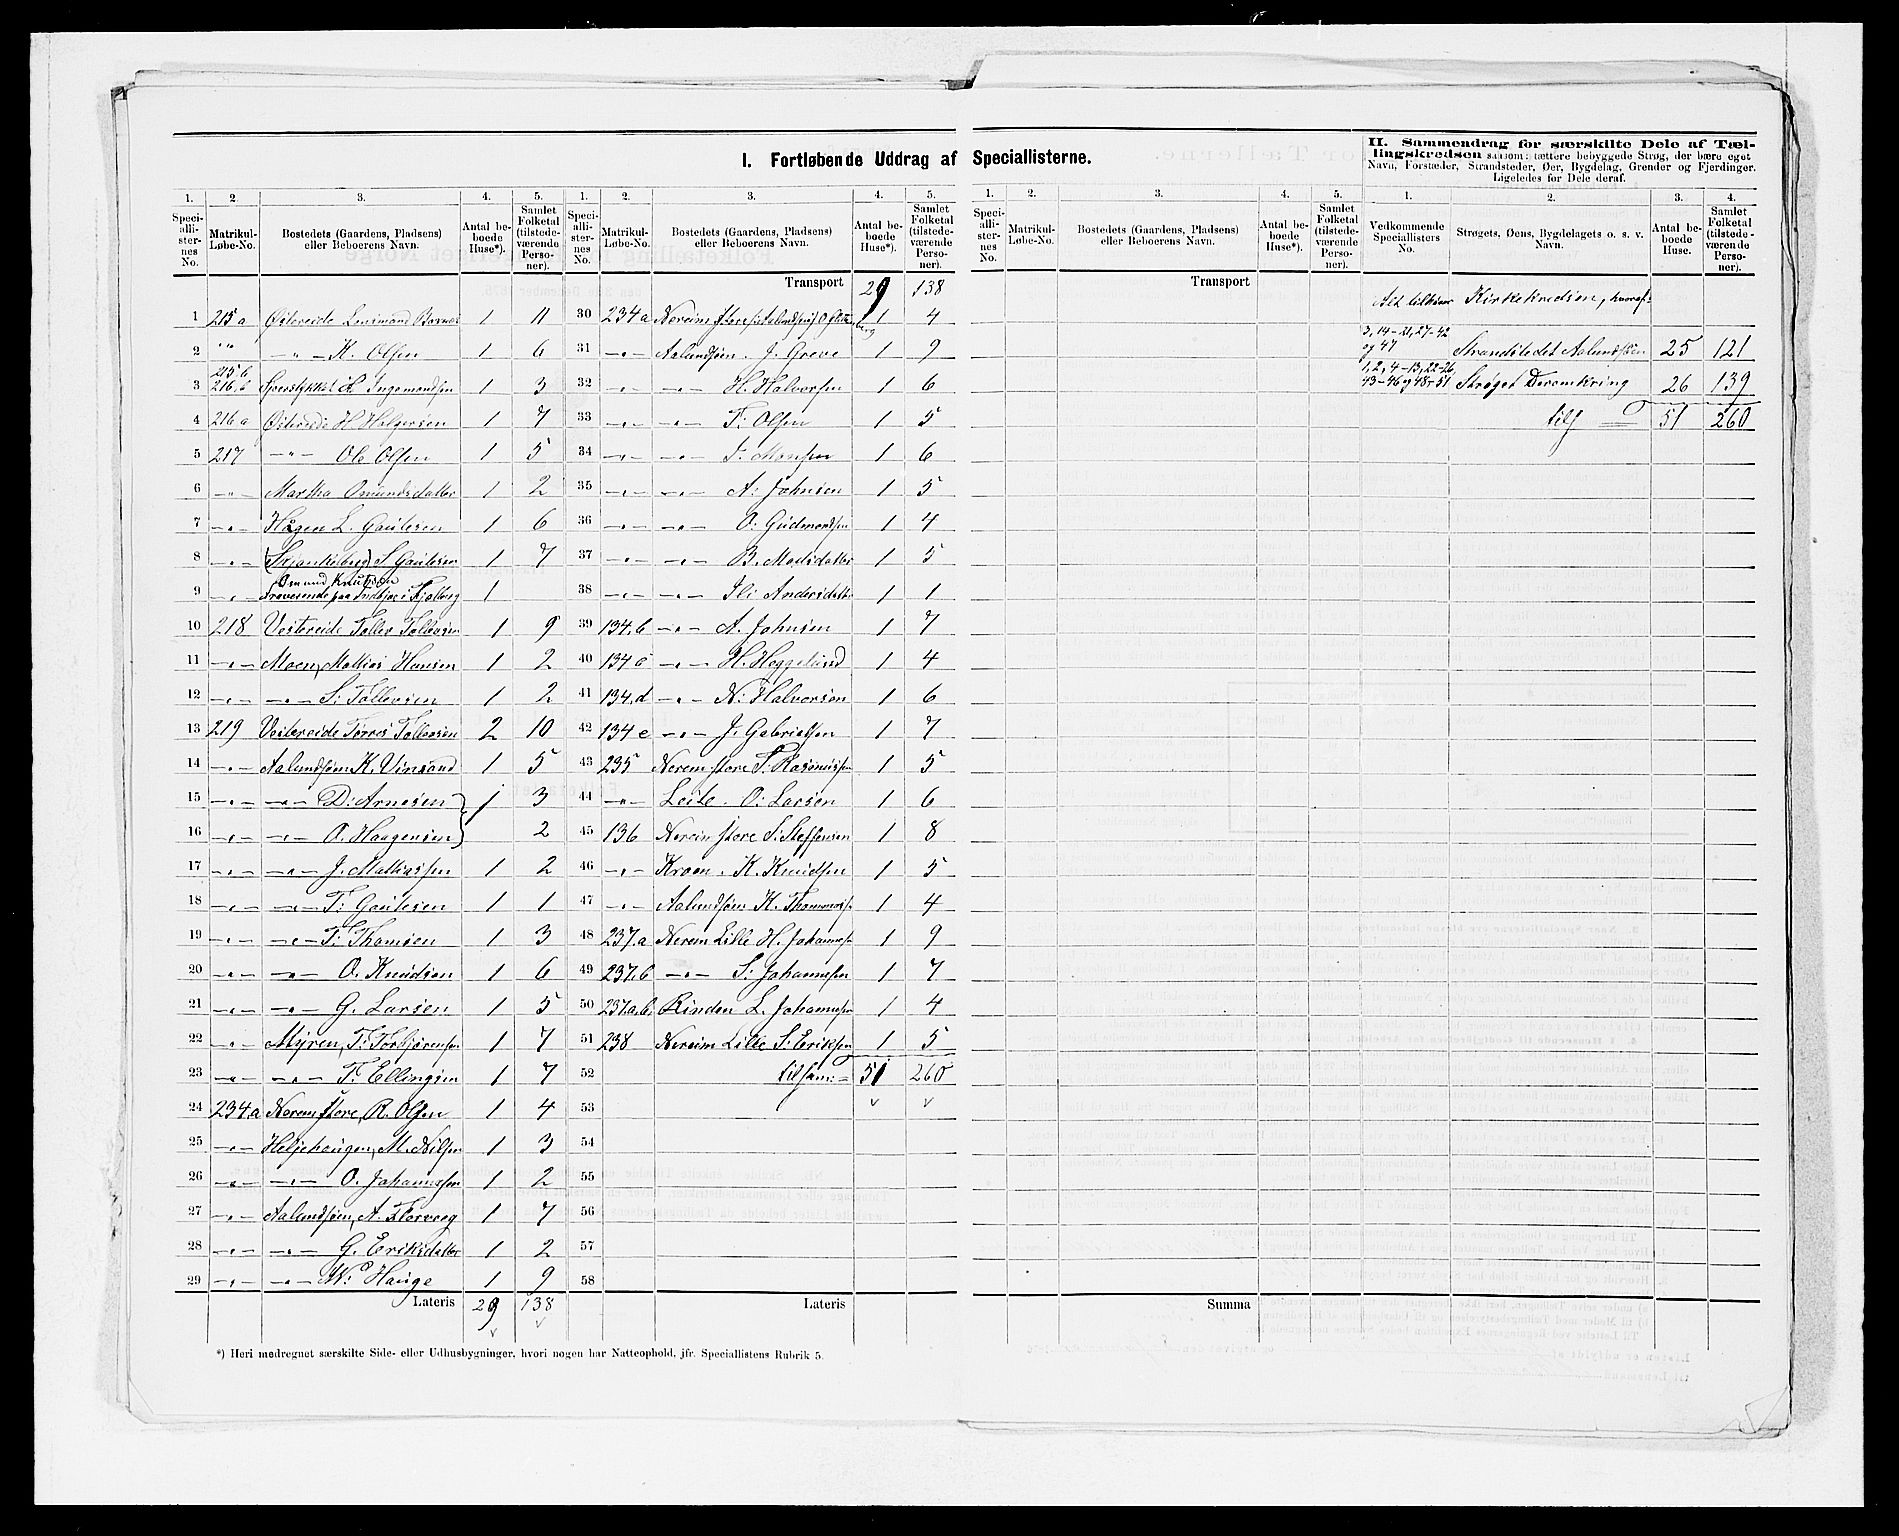 I. Fortløbende Uddrag af Speciallisterne.
II. Sammendrag for særskilte Dele af Tællingskredsen saasom: tættere bebyggede Strøg, der bære eget
Navn, Forstæder, Strandsteder, Øer, Bygdelag, Grender og Fjerdinger.
Ligeledes for Dele deraf.
1. 2. 3. 4. 5. 1. 2. 3. 4. 5. 1. 2. 3. 4. 5. 1. 2. 3. 4.
Speciallisternes No. Matrikul-Løbe-No. Bostedets (Gaardens, Pladsens) eller Beboerens Navn. Antal beboede Huse*). Samlet Folketal (tilstedeværende Personer).
Speciallisternes No. Matrikul-Løbe-No. Bostedets (Gaardens, Pladsens) eller Beboerens Navn. Antal beboede Huse*). Samlet Folketal (tilstedeværende Personer).
Speciallisternes No. Matrikul-Løbe-No. Bostedets (Gaardens, Pladsens) eller Beboerens Navn. Antal beboede Huse*). Samlet Folketal (tilstedeværende Personer).
Vedkommende Speciallisters No. Strøgets, Øens, Bygdelagets o. s. v. Navn. Antal beboede Huse. Samlet Folketal (tilstedeværende Personer).
1 215 a Østereide Lensmand 1 11
2 " " — " — K. Olsen 1 6
3 215 b 216, b H Ingemondsen 1 3
4 216 a Østereide H Holgersen 1 7
5 217 — " — Ole Olsen 1 5
6 — " — Martha Omundsdatter 1 2
7 — " — Hågen L. Gautesen 1 6
8 — " — S Gautesen 1 7
9 — " — Omund Knutsen
Fraværende paa 1
10 218 Vestereide Tollev Tollevsen 1 9
11 — " — Moen, Mathias Hansen 1 2
12 — " — — " — S: Tollevsen 1 2
13 219 Vestereide Torres Tollevsen 2 10
14 — " — Aalundsøen K. Vinsand 1 5
15 — " — — " — D: Arnesen } 1 3
16 — " — — " — O. Haagensen } 2
17 — " — — " — J. Mathiassen 1 2
18 — " — — " — T: Gautesen 1 1
19 — " — — " — T: Thomsen 1 3
20 — " — — " — O. Knudsen 1 6
21 — " — — " — G. Larsen 1 5
22 — " — Myren, T: Torbjørensen 1 7
23 — " — — " — T: Ellingsen 1 7
24 234 a Nereim store, R. Olsen 1 4
25 — " — Heljehaugen, M. Nilsen 1 3
26 — " — — " — O. Johannessen 1 2
27 — " — Aalundsøen, A. Florvaag 1 7
28 — " — — " — G. Eriksdatter 1 2
29 — " — — " — N: Hauge 1 9
Lateris 29 138
Transport 29 138
30 234 a Nereim store 1 4
31 — " — Aalundsøen. J. Greve 1 9
32 — " — — " — H. Halvorsen 1 6
33 — " — — " — T: Olsen 1 5
34 — " — — " — T. Monsen 1 6
35 — " — — " — A: Johnsen 1 5
36 — " — — " — O: Gudmondsen 1 4
37 — " — — " — B. Madsdatter 1 5
38 — " — — " — Ili Andersdatter 1 1
39 134, b — " — A. Johnsen 1 7
40 134 c — " — H. Heggelund 1 4
41 134, d — " — N: Halvorsen 1 6
42 134 e — " — J. Gabrielsen 1 7
43 235 Nereim store T: Rasmussen 1 5
44 — " — Leite. O: Larsen 1 6
45 136 Nereim store S: Steffensen 1 8
46 — " — Kroen. K. Knudsen 1 5
47 — " — Aalundsøen K. Thommassen 1 4
48 237, a Nereim Lille H. Johannessen 1 9
49 237, b — " — S: Johannessen 1 7
50 237, a, b, Rinden L. Johannessen 1 4
51 238 Nereim Lille S: Eriksen 1 5
52 tilsam: = 51 260
53
54
55
56
57
58
Lateris
Transport
Summa
Alt tilhører Kirkekredsen, hvoraf:
3, 14–21, 27–42
og 47 Strandstedet Aalundsøen 25 121
1, 2, 4–13, 22–26,
43–46 og 48–51 Strøget Deromkring 26 139
tils = 51 260
*) Heri medregnet særskilte Side- eller Udhusbygninger, hvori nogen har Natteophold, jfr. Speciallistens Rubrik 5.